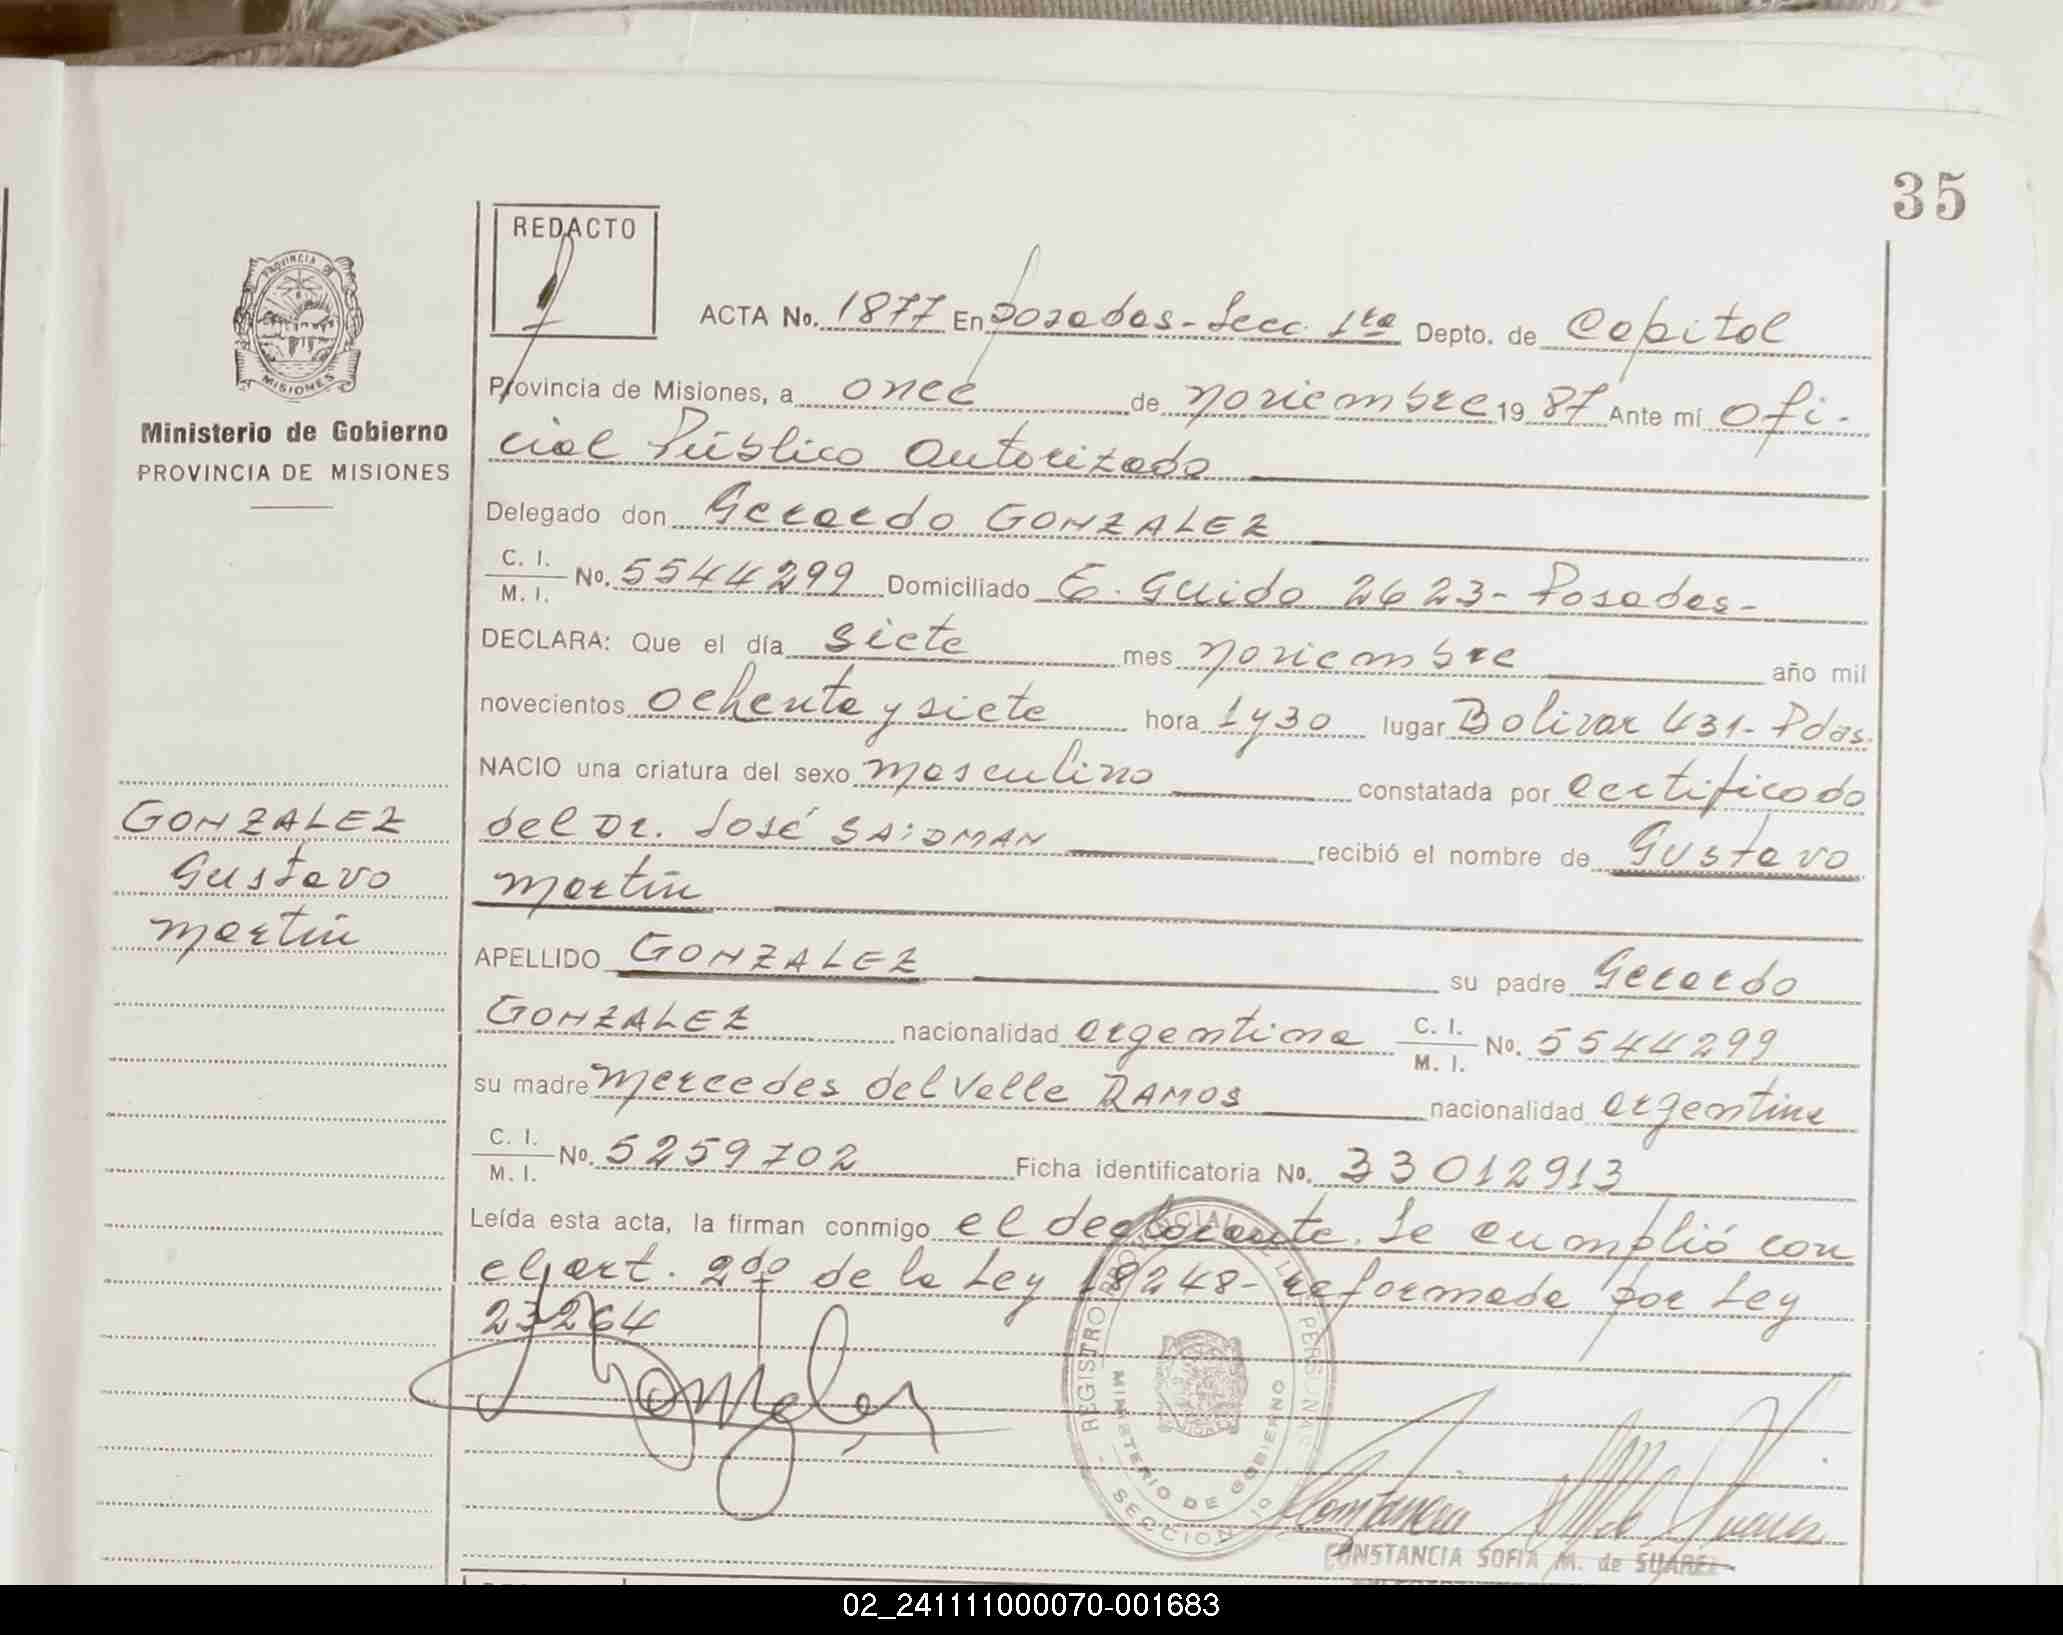 35
REDACTO
PROVINCIA DE
MISIONES
Ministerio de Gobierno
PROVINCIA DE MISIONES
ACTA No. 1877 En Posadas - Secc. 1ra Depto. de Capital
Provincia de Misiones, a once de noviembre 19 87 Ante mí Ofi-
cial Público Autorizado
Delegado don Gerardo GONZALEZ
C. I.
M. I. No. 5544299 Domiciliado E. Guido 2623 - Posadas -
DECLARA: Que el día siete mes noviembre año mil
novecientos ochenta y siete hora 1 y 30 lugar Bolivar 431 - Pdas.
NACIO una criatura del sexo masculino constatada por certificado
del Dr. José SAIDMAN recibió el nombre de Gustavo
Martín
APELLIDO GONZALEZ su padre Gerardo
GONZALEZ nacionalidad argentina C. I.
M. I. No. 5544299
su madre Mercedes del Valle RAMOS nacionalidad argentina
C. I.
M. I. No. 5259702 Ficha identificatoria No. 33012913
Leída esta acta, la firman conmigo el declarante. Se cumplió con
el art. 2do de la Ley 18248 - reformada por Ley
23264
GONZALEZ
Gustavo
Martín
MINISTERIO DE GOBIERNO
CONSTANCIA SOFIA M. de SUAREZ
02_241111000070-001683